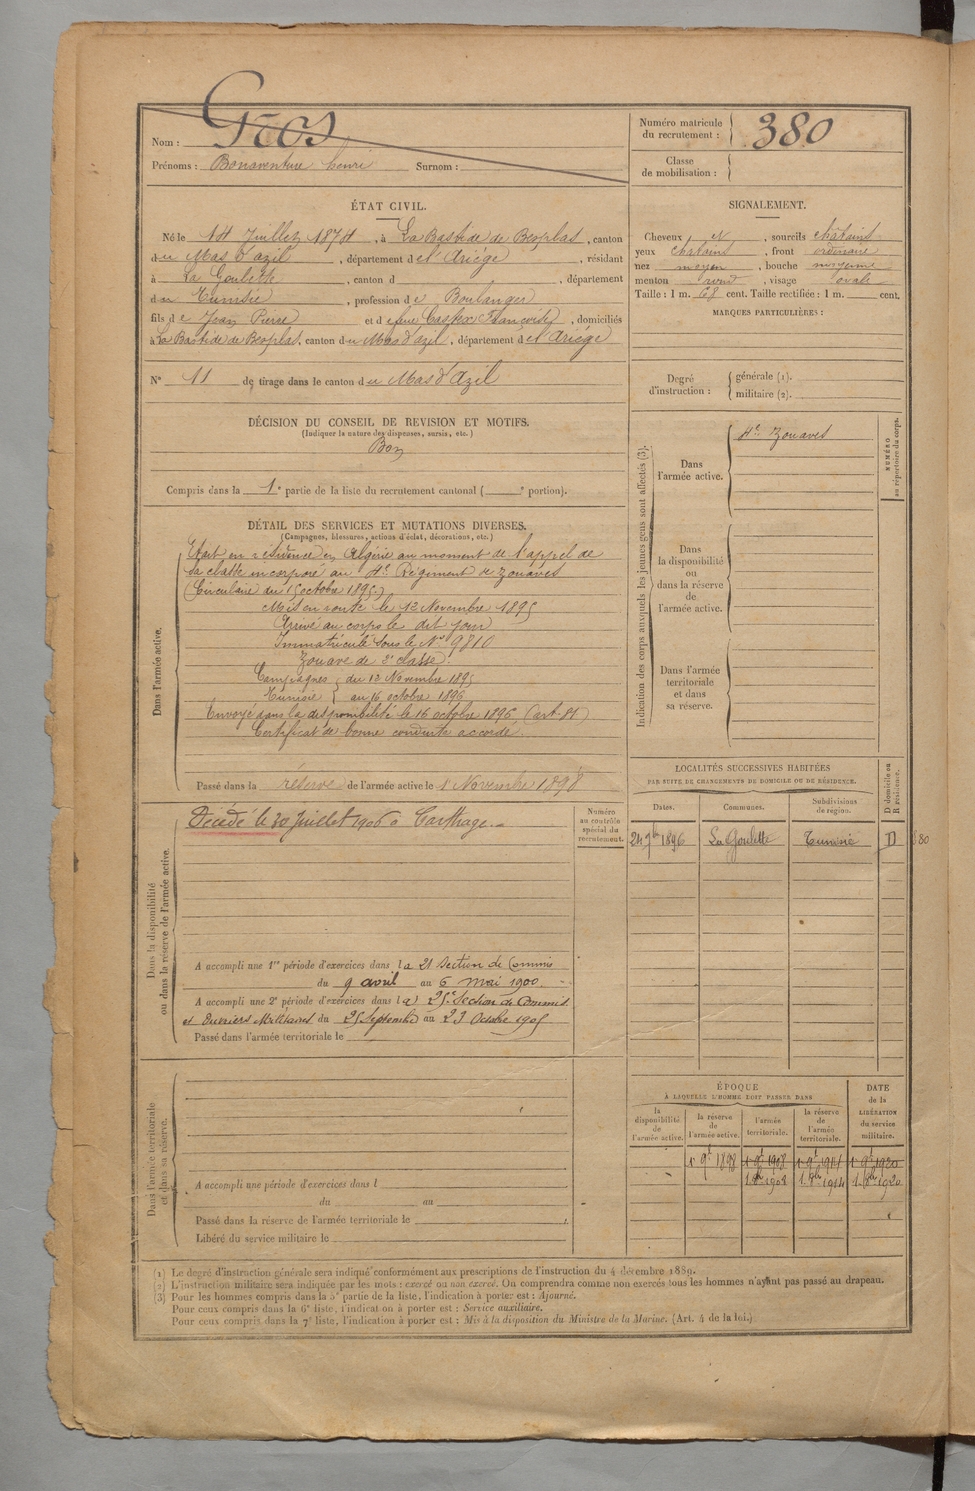 Nom : Gros
Prénoms : Bonaventure henri Surnom :
Numéro matricule du recrutement : 380
Classe de mobilisation :
ÉTAT CIVIL.
Né le 14 Juillet 1874, à La Bastide de Besplas, canton
du Mas d'azil, département de l'Ariége, résidant
à La Goulette, canton d , département
d Tunisie, profession de Boulanger
fils de Jean Pierre et de feue Françoise, domiciliés
à La Bastide de Besplas, canton du Mas d'azil, département de l'Ariége
N° 11 de tirage dans le canton du Mas d'Azil
DÉCISION DU CONSEIL DE REVISION ET MOTIFS.
(Indiquer la nature des dispenses, sursis, etc.)
Bon
Compris dans la 1e partie de la liste du recrutement cantonal ( e portion).
SIGNALEMENT.
Cheveux et, sourcils châtains
yeux châtains, front ordinaire
nez moyen, bouche moyenne
menton rond, visage ovale
Taille : 1 m. 68 cent. Taille rectifiée : 1 m. cent.
MARQUES PARTICULIÈRES :
Degré d'instruction : générale (1).
militaire (2).
DÉTAIL DES SERVICES ET MUTATIONS DIVERSES.
(Campagnes, blessures, actions d'éclat, décorations, etc.)
Dans l'armée active.
Etait en résidence en Algérie au moment de l'appel de
sa classe incorporé au 4e Régiment de Zouaves
(Circulaire du 15 octobre 1895.)
Mis en route le 12 Novembre 1895
Arrivé au corps le dit jour
Immatriculé sous le N° 9810
Zouave de 2e classe.
Campagnes du 12 Novembre 1895
Tunisie au 16 octobre 1896
Envoyé dans la disponibilité le 16 octobre 1896 (art. )
Certificat de bonne conduite accordé.
Passé dans la réserve de l'armée active le 1 Novembre 1898
Dans la disponibilité ou dans la réserve de l'armée active.
Numéro au contrôle spécial du recrutement.
Décédé le 30 Juillet 1906 à Carthage.
A accompli une 1re période d'exercices dans la 21 Section de Commis
du 9 avril au 6 mai 1900
A accompli une 2e période d'exercices dans la 25e Section de Commis
et Ouvriers Militaires du 25 Septembre au 23 Octobre 1905
Passé dans l'armée territoriale le
Dans l'armée territoriale et dans sa réserve.
A accompli une période d'exercices dans l
du au
Passé dans la réserve de l'armée territoriale le
Libéré du service militaire le
Indication des corps auxquels les jeunes gens sont affectés (3).
NUMÉRO au répertoire du corps.
Dans l'armée active.
4e Zouaves
Dans la disponibilité ou dans la réserve de l'armée active.
Dans l'armée territoriale et dans sa réserve.
LOCALITÉS SUCCESSIVES HABITÉES
PAR SUITE DE CHANGEMENTS DE DOMICILE OU DE RÉSIDENCE.
Dates. Communes. Subdivisions de région. D domicile ou R résidence.
24 9bre 1896 La Goulette Tunisie D
ÉPOQUE
À LAQUELLE L'HOMME DOIT PASSER DANS
DATE de la LIBÉRATION du service militaire.
la disponibilité de l'armée active. la réserve de l'armée active. l'armée territoriale. la réserve de l'armée territoriale.
1 9e 1898 1 9e 1908 1 9e 1914 1 9e 1920
1908 1914 1920
(1) Le degré d'instruction générale sera indiqué conformément aux prescriptions de l'instruction du 4 décembre 1889.
(2) L'instruction militaire sera indiquée par les mots : exercé ou non exercé. On comprendra comme non exercés tous les hommes n'ayant pas passé au drapeau.
(3) Pour les hommes compris dans la 5e partie de la liste, l'indication à porter est : Ajourné.
Pour ceux compris dans la 6e liste, l'indication à porter est : Service auxiliaire.
Pour ceux compris dans la 7e liste, l'indication à porter est : Mis à la disposition du Ministre de la Marine. (Art. 4 de la loi.)